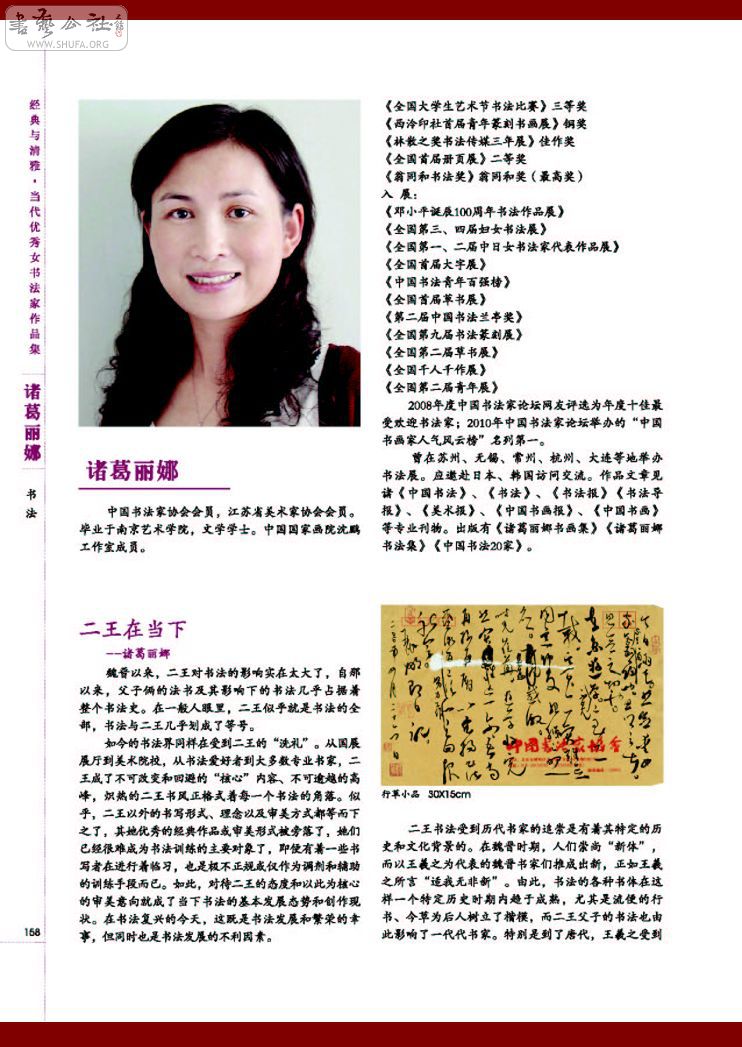 書藝公社
WWW.SHUFA.ORG
经典与清雅·当代优秀女书法家作品集
诸葛丽娜
书法
158
诸葛丽娜
中国书法家协会会员，江苏省美术家协会会员。
毕业于南京艺术学院，文学学士。中国国家画院沈鹏
工作室成员。
《全国大学生艺术节书法比赛》三等奖
《西泠印社首届青年篆刻书画展》铜奖
《林散之奖书法传媒三年展》佳作奖
《全国首届册页展》二等奖
《翁同和书法奖》翁同和奖（最高奖）
入 展：
《邓小平诞辰100周年书法作品展》
《全国第三、四届妇女书法展》
《全国第一、二届中日女书法家代表作品展》
《全国首届大字展》
《中国书法青年百强榜》
《全国首届草书展》
《第二届中国书法兰亭奖》
《全国第九届书法篆刻展》
《全国第二届草书展》
《全国千人千作展》
《全国第二届青年展》
2008年度中国书法家论坛网友评选为年度十佳最
受欢迎书法家；2010年中国书法家论坛举办的“中国
书画家人气风云榜”名列第一。
曾在苏州、无锡、常州、杭州、大连等地举办
书法展。应邀赴日本、韩国访问交流。作品文章见
诸《中国书法》、《书法》、《书法报》《书法导
报》、《美术报》、《中国书画报》、《中国书画》
等专业刊物。出版有《诸葛丽娜书画集》《诸葛丽娜
书法集》《中国书法20家》。
二王在当下
--诸葛丽娜
魏晋以来，二王对书法的影响实在太大了，自那
以来，父子俩的法书及其影响下的书法几乎占据着
整个书法史。在一般人眼里，二王似乎就是书法的全
部，书法与二王几乎划成了等号。
如今的书法界同样在受到二王的“洗礼”。从国展
展厅到美术院校，从书法爱好者到大多数专业书家，二
王成了不可改变和回避的“核心”内容、不可逾越的高
峰，炽热的二王书风正格式着每一个书法的角落。似
乎，二王以外的书写形式、理念以及审美方式都等而下
之了，其她优秀的经典作品或审美形式被旁落了，她们
已经很难成为书法训练的主要对象了，即使有着一些书
写者在进行着临习，也是极不正规或仅作为调剂和辅助
的训练手段而已。如此，对待二王的态度和以此为核心
的审美意向就成了当下书法的基本发展态势和创作现
状。在书法复兴的今天，这既是书法发展和繁荣的幸
事，但同时也是书法发展的不利因素。
中国书法家协会
行草小品 30X15cm
二王书法受到历代书家的追崇是有着其特定的历
史和文化背景的。在魏晋时期，人们崇尚“新体”，
而以王羲之为代表的魏晋书家们推成出新，正如王羲
之所言“适我无非新”。由此，书法的各种书体在这
样一个特定历史时期内趋于成熟，尤其是流便的行
书、今草为后人树立了楷模，而二王父子的书法也由
此影响了一代代书家。特别是到了唐代，王羲之受到